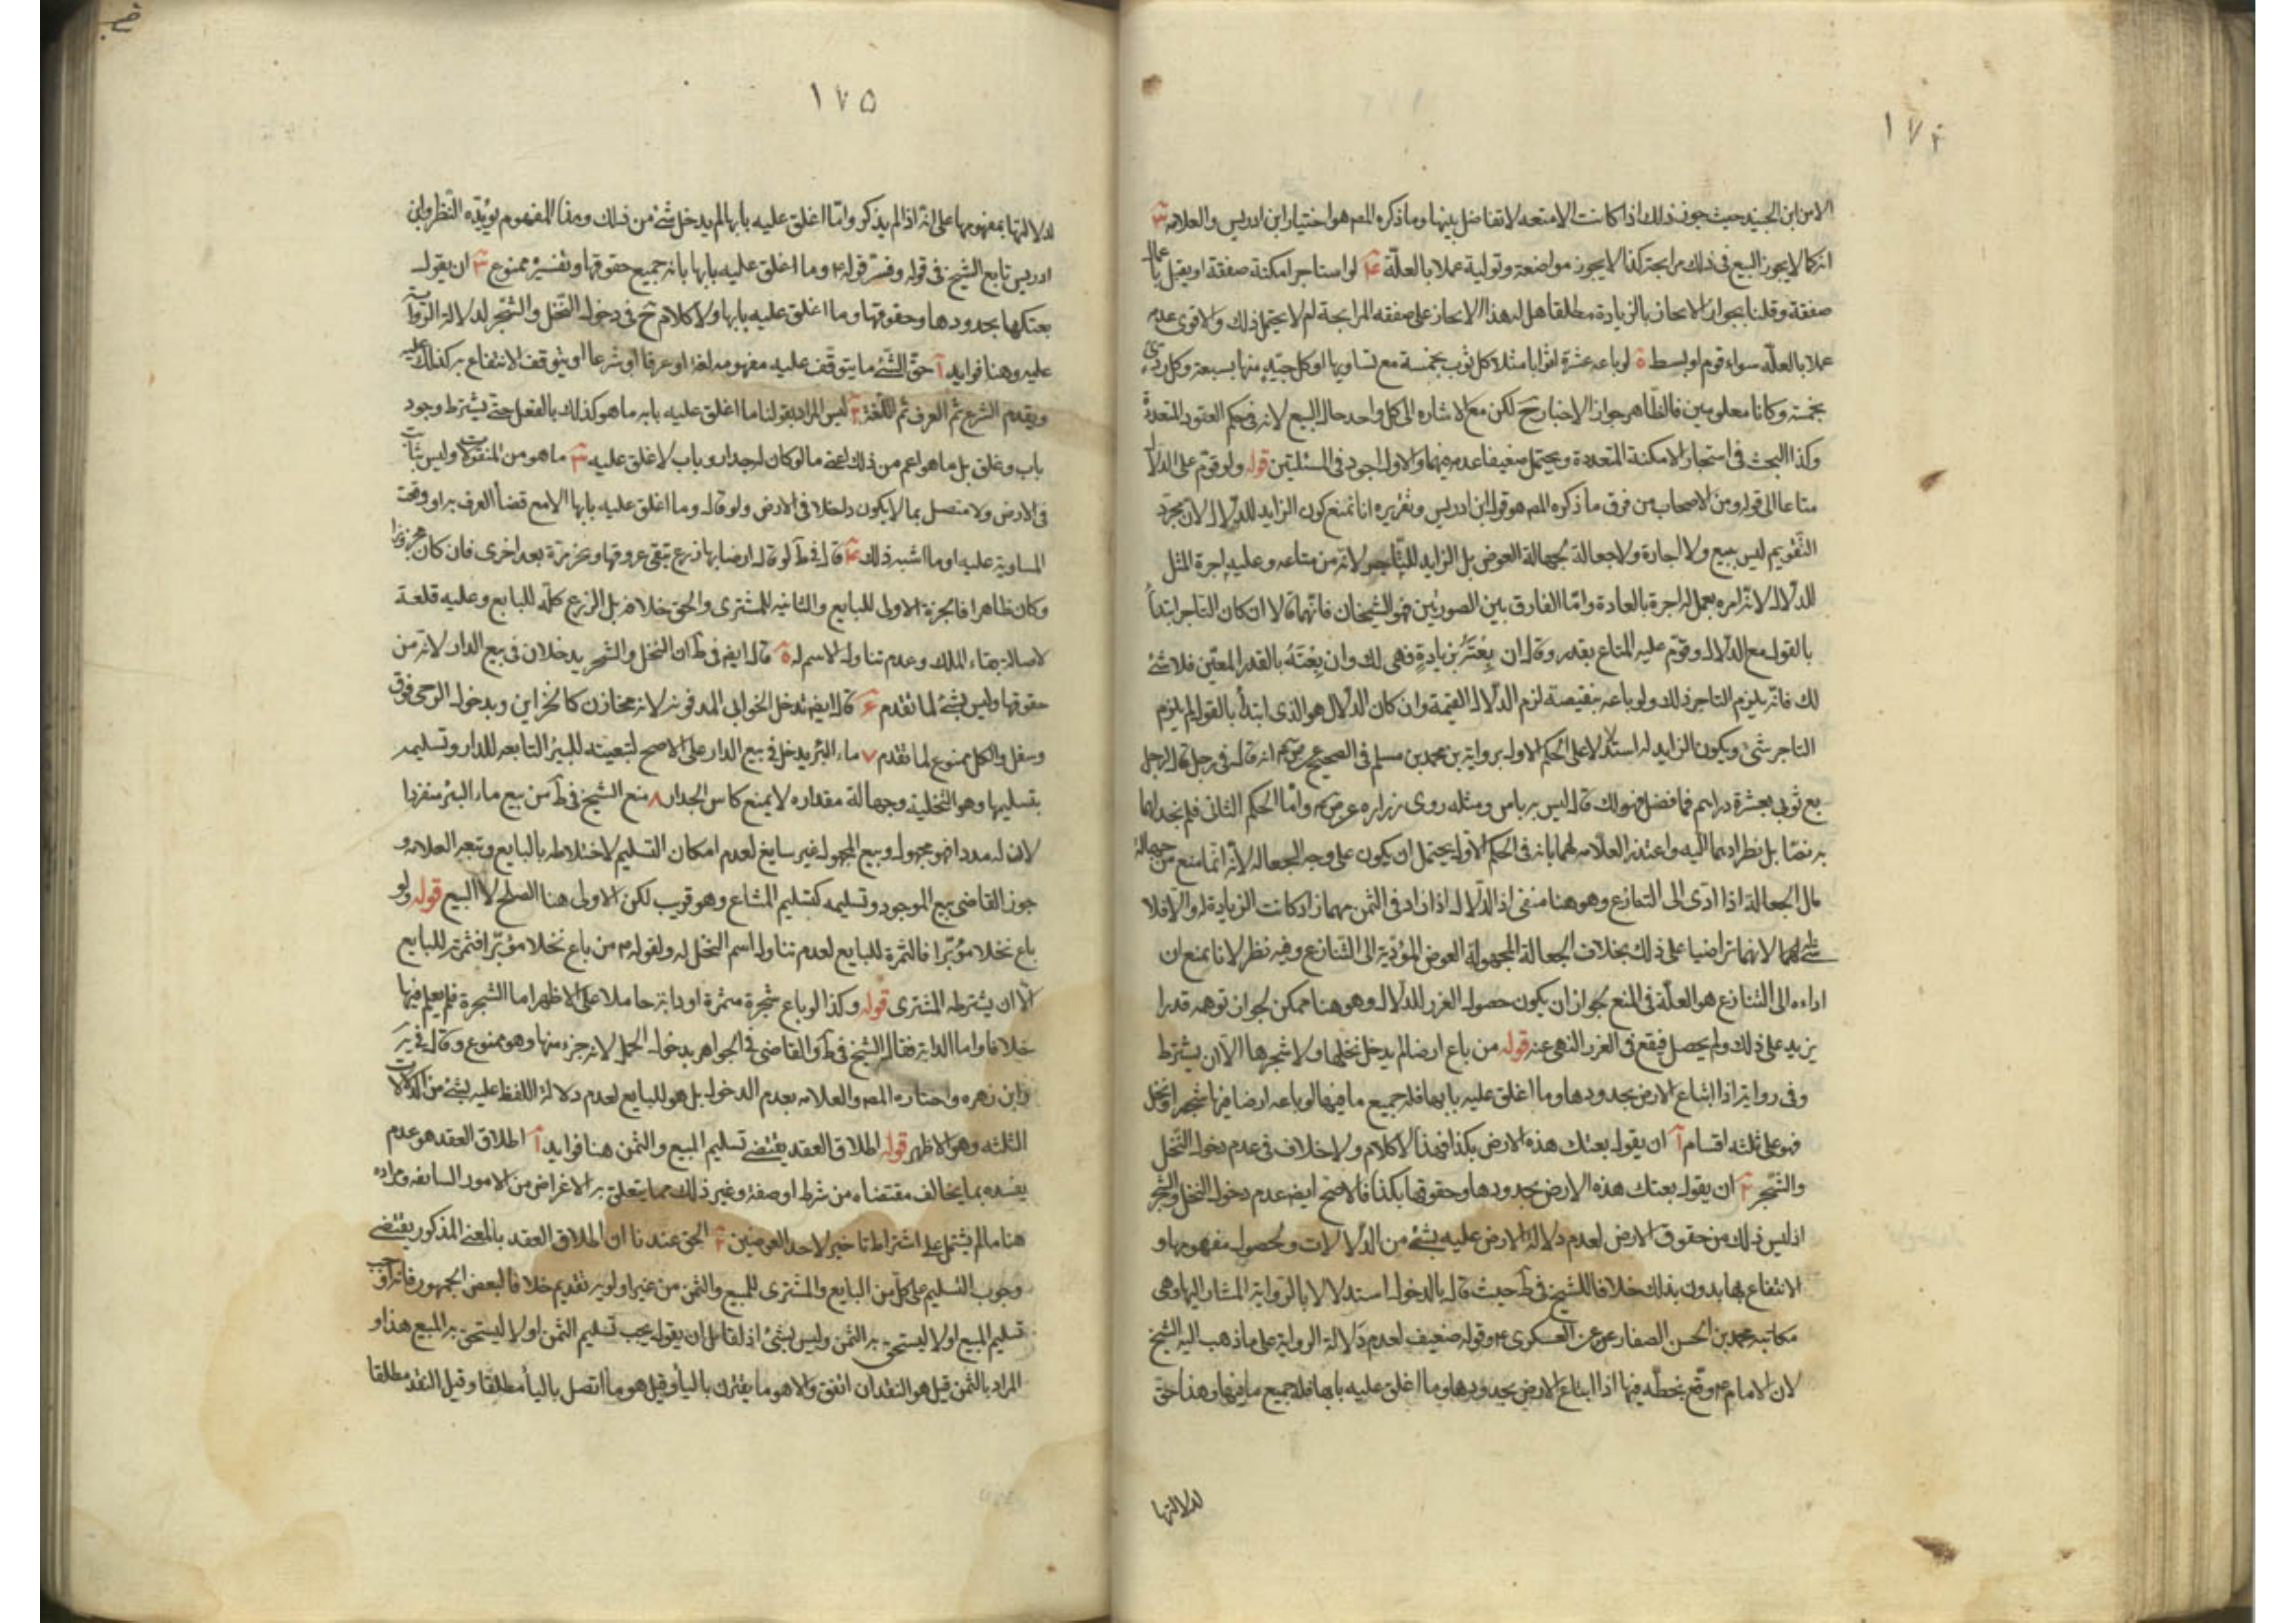 ١٧٤
الا من ابن الجنيد حيث جوز ذلك اذا كانت الامتعه لا تفاضل بينها وما ذكره المص هو اختيار ابن ادريس والعلامه ٣
انه كما لا يجوز البيع فى ذلك مرابحة كذا لا يجوز مواضعة وتولية عملا بالعلّة ٤ لو استاجر امكنة صفقة او يقبل باعمال
صفقة وقلنا بجواز الايجار بالزيادة مطلقا هل له هذا الايجار على صفقه المرابحة ام لا يحتمل ذلك والاقوى عدمه
عملا بالعلّه سواء قوم او بسط ٥ لو باعه عشرة اثوابا مثلا كل ثوب بخمسة مع تساويها او كل جيّد منها بسبعة وكل ردئ
بخمسة وكانا معلومين فالظاهر جواز الاخبار ح لكن مع الاشاره الى كل واحد حال البيع لانه فى حكم العقود المتعددة
وكذا البحث فى استيجار الامكنة المتعددة ويحتمل ضعيفا عدمه فيهما والاول اجود فى المسئلتين قوله ولو قوّم على الدلال
متاعا الى قوله ومن الاصحاب من فرق ما ذكره المص هو قول ابن ادريس وتقريره انا نمنع كون الزايد للدلال لان مجرّد
التقويم ليس ببيع ولا اجارة ولا جعالة لجهالة العوض بل الزايد للتاجر لانه من متاعه وعليه اجرة المثل
للدلال لانه امره بعمل له اجرة بالعادة وامّا الفارق بين الصورتين فهو الشيخان فانّهما قالا ان كان التاجر ابتدأ
بالقول مع الدلال وقوّم عليه المتاع بقدر وقال ان بعته بزيادة فهى لك وان بعته بالقدر المعيّن فلا شئ
لك فانّه يلزم التاجر ذلك ولو باعه بنقيصة لزم الدلال القيمة وان كان الدلال هو الذى ابتدأ بالقول لم يلزم
التاجر شئ ويكون الزايد له استدلالا على الحكم الاول برواية محمد بن مسلم فى الصحيح عن ص انه قال فى رجل قال لرجل
بع ثوبى بعشرة دراهم فما فضل فهو لك قال ليس به باس ومثله روى زراره عن ص وامّا الحكم الثانى فلم نجد لهما
به نصّا بل نظرا منهما اليه واعتذر العلّامه لهما بانه فى الحكم الاول يحتمل ان يكون على وجه الجعاله لانّه انما منع من جهالة
مال الجعالة اذا ادّى الى التنازع وهو هنا منفى اذ الدلال اذا زاد فى الثمن مهما زاد كانت الزيادة له والا فلا
شئ لهما لانهما تراضيا على ذلك بخلاف الجعالة المجهولة العوض المؤدّية الى التنازع وفيه نظر لانا نمنع ان
اداءه الى التنازع هو العلّة فى المنع لجواز ان يكون حصول الغرر للدلال وهو هنا ممكن لجواز توهمه قدرا
يزيد على ذلك ولم يحصل فيقع فى الغرر المنهى عنه قوله من باع ارضا لم يدخل نخلها ولا شجرها الا ان يشترط
وفى رواية اذا ابتاع الارض بحدودها وما اغلق عليه بابها فله جميع ما فيها لو باعه ارضا فيها شجر او نخل
فهو على ثلثه اقسام ١ ان يقول بعتك هذه الارض بكذا فهذا لا كلام ولا خلاف فى عدم دخول النخل
والشجر ٢ ان يقول بعتك هذه الارض بحدودها وحقوقها بكذا فالاصح ايضا عدم دخول النخل والشجر
اذ ليس ذلك من حقوق الارض لعدم دلالة الارض عليه بشئ من الدلالات ولحصول مفهومها و
الانتفاع بها بدون ذلك خلافا للشيخ فى ط حيث قال بالدخول استدلالا بالرواية المشار اليها وهى
مكاتبة محمد بن الحسن الصفار عن العسكرى ع وقوله ضعيف لعدم دلالة الرواية على ما ذهب اليه الشيخ
لان الامام ع وقّع بخطّه فيها اذا ابتاع الارض بحدودها وما اغلق عليه بابها فله جميع ما فيها وهذا حق
لدلالتها
١٧٥
لدلالتها بمفهومها على انه اذا لم يذكر وامّا اغلق عليه بابها لم يدخل شئ من ذلك وهذا المفهوم يؤيّده النظر وابن
ادريس تابع الشيخ فى قوله وفسّر قوله ع وما اغلق عليه بابها بانه جميع حقوقها وتفسيره ممنوع ٣ ان يقول
بعتكها بحدودها وحقوقها وما اغلق عليه بابها ولا كلام ح فى دخول النخل والشجر لدلالة الرواية
عليه وهنا فوايد ١ حقّ الشئ ما يتوقف عليه مفهومه لغة او عرفا او شرعا او يتوقف الانتفاع به كذلك عليه
ويقدم الشرع ثم العرف ثم اللغة ٢ ليس المراد بقولنا ما اغلق عليه بابه ما هو كذلك بالفعل حتى يشترط وجود
باب وغلق بل ما هو اعم من ذلك اعنى ما لو كان له جدار وباب لا غلق عليه ٣ ما هو من المنقولات وليس بثابت
فى الارض ولا متصل بها لا يكون داخلا فى الارض ولو قال وما اغلق عليه بابها الا مع قضاء العرف به او وقعت
المساومة عليه او ما اشبه ذلك ٤ قال فى ط لو قال ارضا بها زرع تبقى عروقها وتجز مرّة بعد اخرى فان كان مجزوزا
وكان ظاهرا فالجزة الاولى للبايع والثانيه للمشترى والحق خلافه بل الزرع كله للبايع وعليه قلعه
لاصالة بقاء الملك وعدم تناول الاسم له ٥ قال ايض فى ط ان النخل والشجر يدخلان فى بيع الدار لانه من
حقوقها وليس بشئ لما تقدم ٦ قال ايض تدخل الخوابى المدفونه لانه مخازن كالخزاين وبدخول الرحى فوق
وسفل والكل ممنوع لما تقدم ٧ ماء البئر يدخل فى بيع الدار على الاصح لتبعيته للبئر التابعه للدار وتسليمه
بتسليمها وهو التخلية وجهالة مقداره لا يمنع كاس الجدار ٨ منع الشيخ فى ط من بيع ماء البئر منفردا
لان له مددا فهو مجهول وبيع المجهول غير سايغ لعدم امكان التسليم لاختلاطه بالبايع وتبعه العلامه و
جوز القاضى بيع الموجود وتسليمه كتسليم المشاع وهو قريب لكن الاولى هنا الصلح لا البيع قوله ولو
باع نخلا مؤبّرا فالثمرة للبايع لعدم تناول اسم النخل له ولقوله م من باع نخلا مؤبّرا فثمرته للبايع
الّا ان يشترطه المشترى قوله وكذا لو باع شجرة مثمرة او دابة حاملا على الاظهر اما الشجرة فلم يعلم فيها
خلافا واما الدابة فقال الشيخ فى ط والقاضى فى الجواهر بدخول الحمل لانه جزء منها وهو ممنوع وقال فى ير
وابن زهره واختاره المص والعلامه بعدم الدخول بل هو للبايع لعدم دلالة اللفظ عليه بشئ من الدلالات
الثلثه وهو الاظهر قوله اطلاق العقد يقتضى تسليم المبيع والثمن هنا فوايد ١ اطلاق العقد هو عدم
يقيده بما يخالف مقتضاه من شرط او صفة وغير ذلك مما يتعلق به الاغراض من الامور السايغه ومراده
هنا ما لم يشتمل على اشتراط تاخير لاحد العوضين ٢ الحق عندنا ان اطلاق العقد بالمعنى المذكور يقتضى
وجوب التسليم على كل من البايع والمشترى للمبيع والثمن من غير اولوية تقديم خلافا لبعض الجمهور فانه اوجب
تسليم المبيع اولا ليستحق به الثمن وليس بشئ اذ لقائل ان يقول يجب تسليم الثمن اولا ليستحق به المبيع هذا و
المراد بالثمن قيل هو النقدان اتفق والا هو ما يقترن بالباء وقيل هو ما اتصل بالباء مطلقا وقيل النقد مطلقا